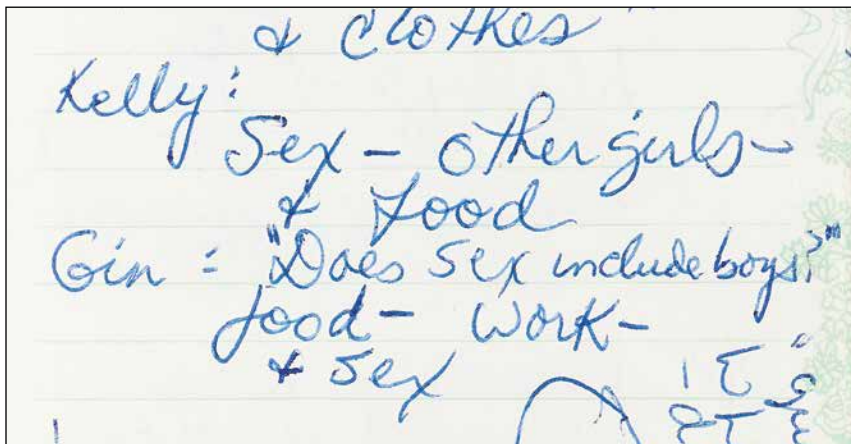 & clothes"
Kelly:
Sex - other girls -
& food
Gin: "Does sex include boys?"
food - work -
& sex